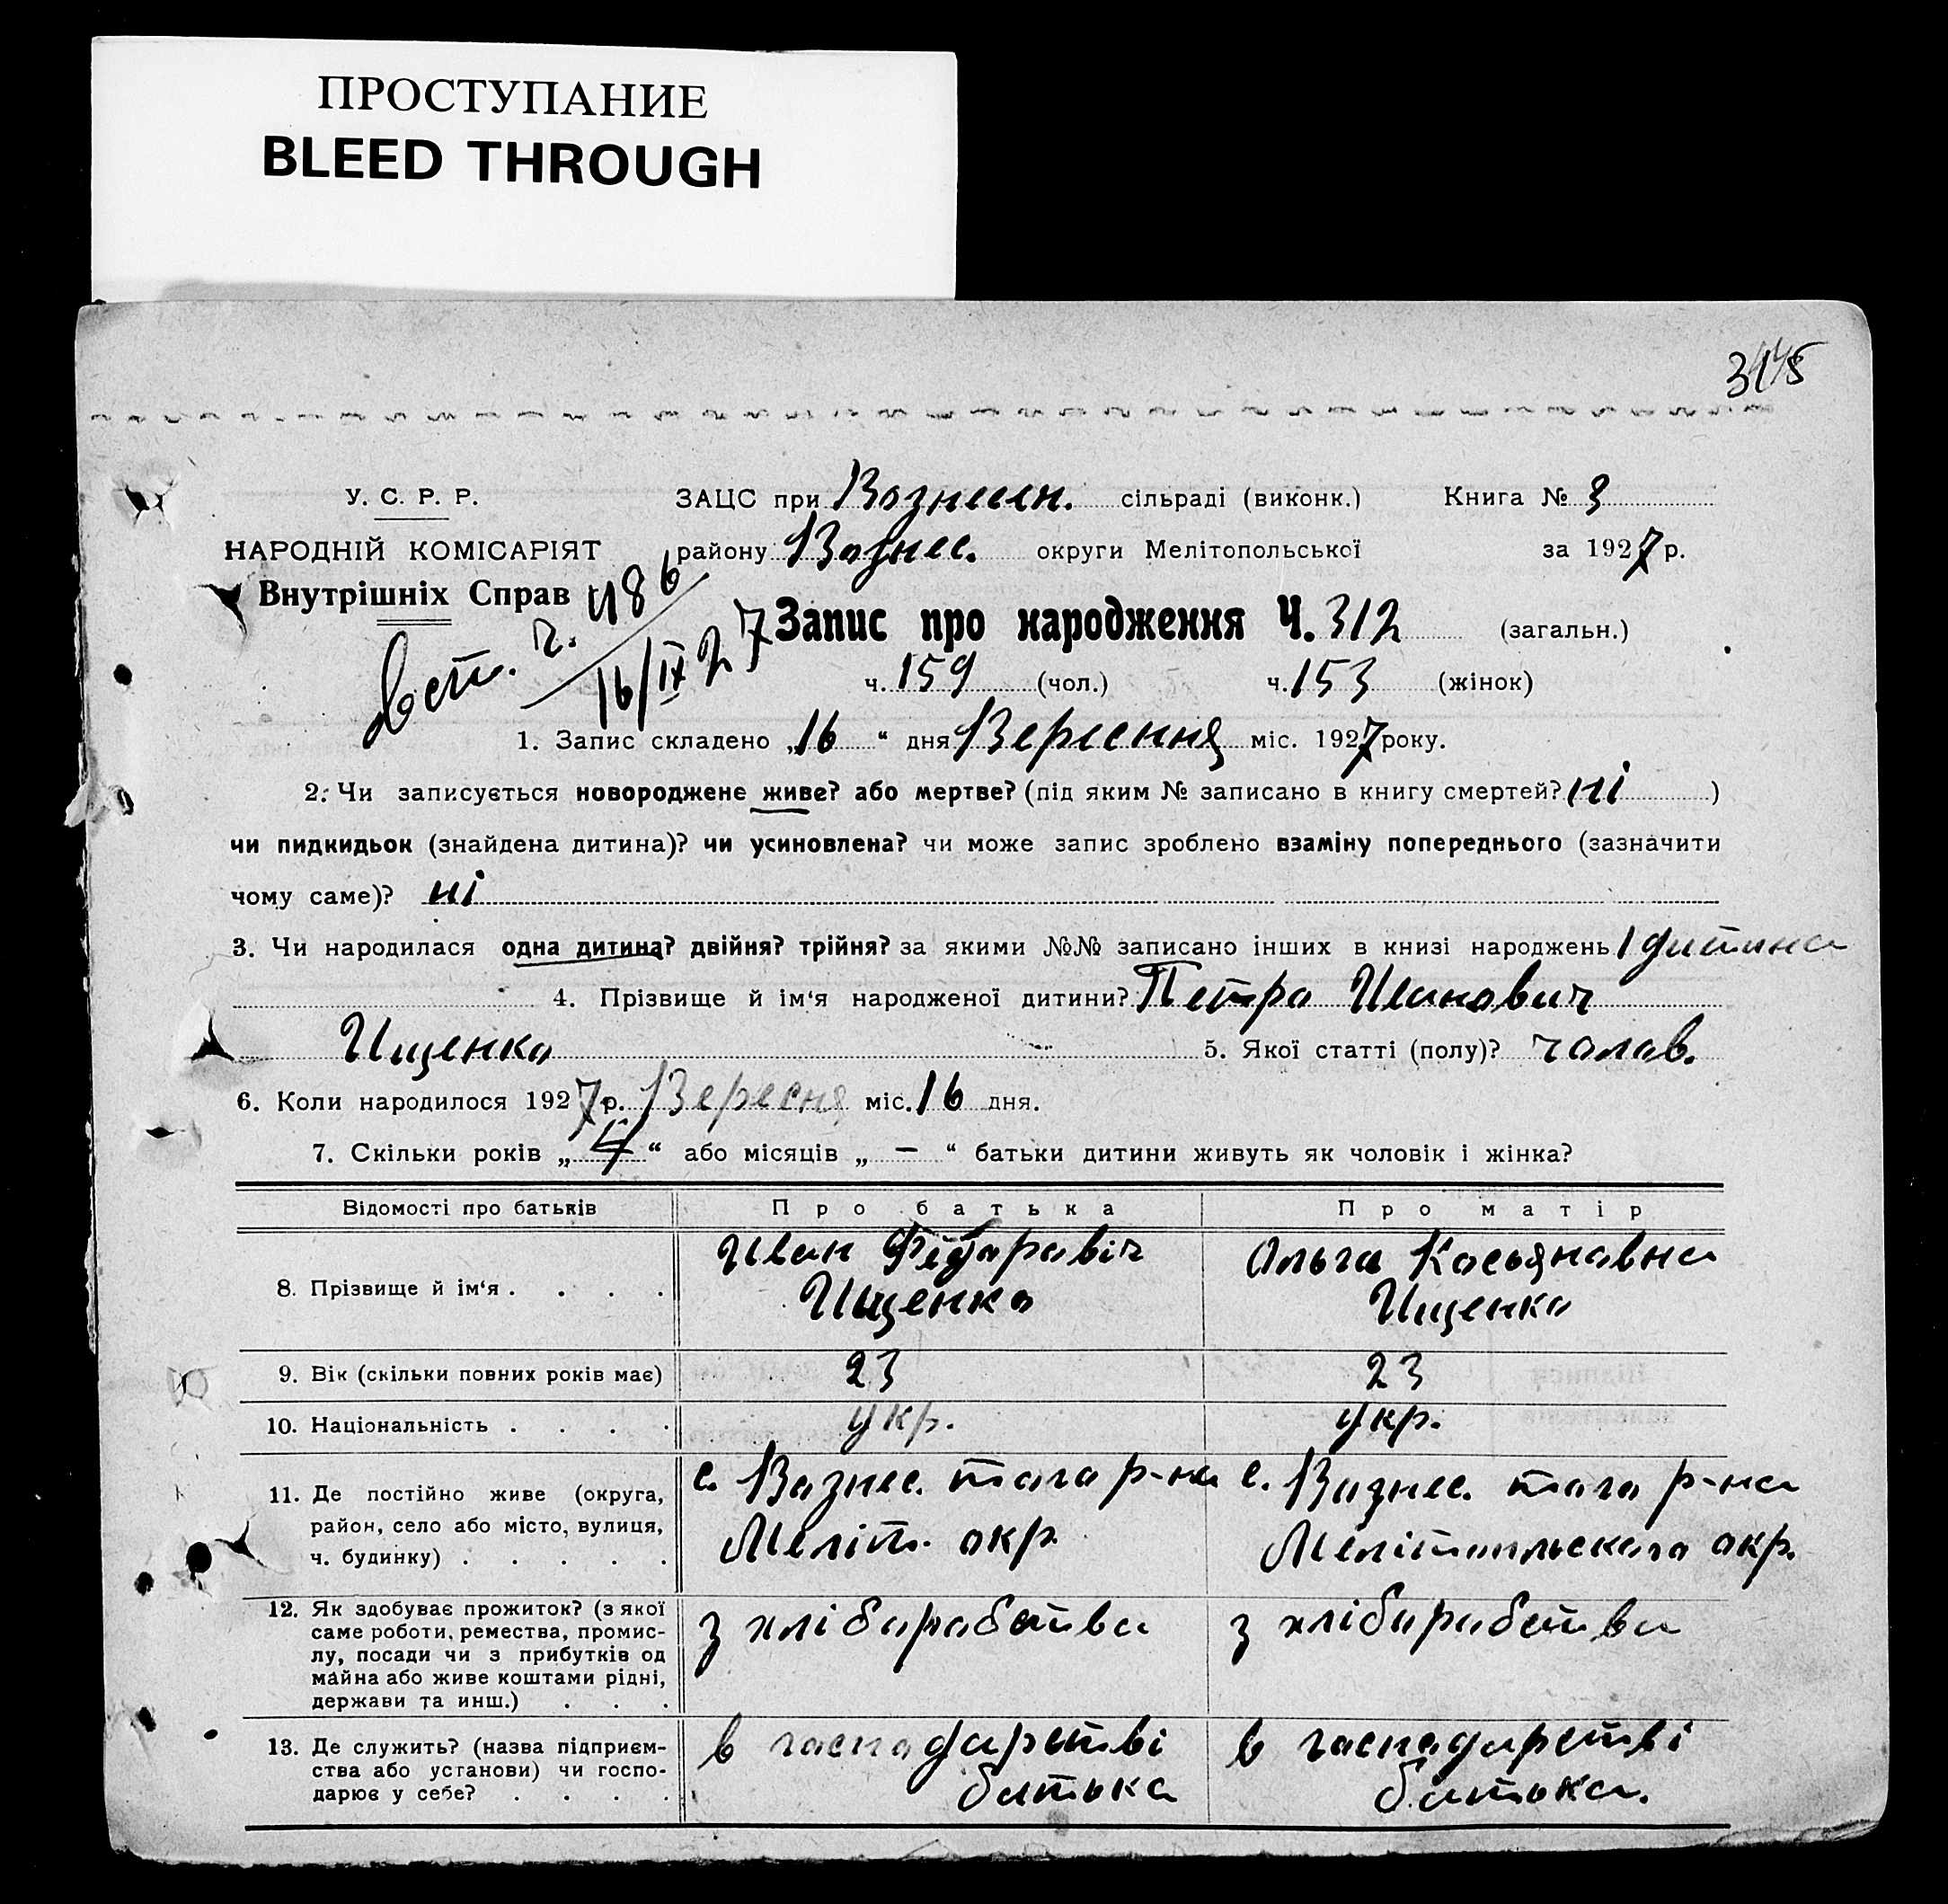 ПРОСТУПАНИЕ
BLEED THROUGH
У. С. Р. Р.
НАРОДНІЙ КОМІСАРІЯТ
Внутрішніх Справ
Вст. ч. 486
16/IX 27
ЗАЦС при Вознесен. сільраді (виконк.) Книга № 3
району Вознес. округи Мелітопольської за 1927 р.
Запис про народження Ч. 312 (загальн.)
ч. 159 (чол.) ч. 153 (жінок)
1. Запис складено „16“ дня Вересення міс. 1927 року.
2. Чи записується новороджене живе? або мертве? (під яким № записано в книгу смертей? ні )
чи пидкидьок (знайдена дитина)? чи усиновлена? чи може запис зроблено взаміну попереднього (зазначити
чому саме)? ні
3. Чи народилася одна дитина? двійня? трійня? за якими №№ записано інших в книзі народжень 1 дитина
4. Прізвище й ім‘я народженої дитини? Петро Иванович
Ищенко 5. Якої статті (полу)? чолов.
6. Коли народилося 1927 р. Вересня міс. 16 дня.
7. Скільки років „4“ або місяців „—“ батьки дитини живуть як чоловік і жінка?
Відомості про батьків Про батька Про матір
8. Прізвище й ім‘я . . . . Иван Федаравіч Ольга Косьяновна
Ищенко Ищенко
9. Вік (скільки повних років має) 23 23
10. Національність . . . . укр. укр.
11. Де постійно живе (округа, с. Вознес. того р-на с. Вознес. того р-на
район, село або місто, вулиця, Меліт. окр. Мелітопльского окр.
ч. будинку) . . . . .
12. Як здобуває прожиток? (з якої з хліборобства з хліборобства
саме роботи, ремества, промис-
лу, посади чи з прибутків од
майна або живе коштами рідні,
держави та инш.) . . .
13. Де служить? (назва підприєм- в господарстві в господарстві
ства або установи) чи госпо- батька батька.
дарює у себе? . . . .